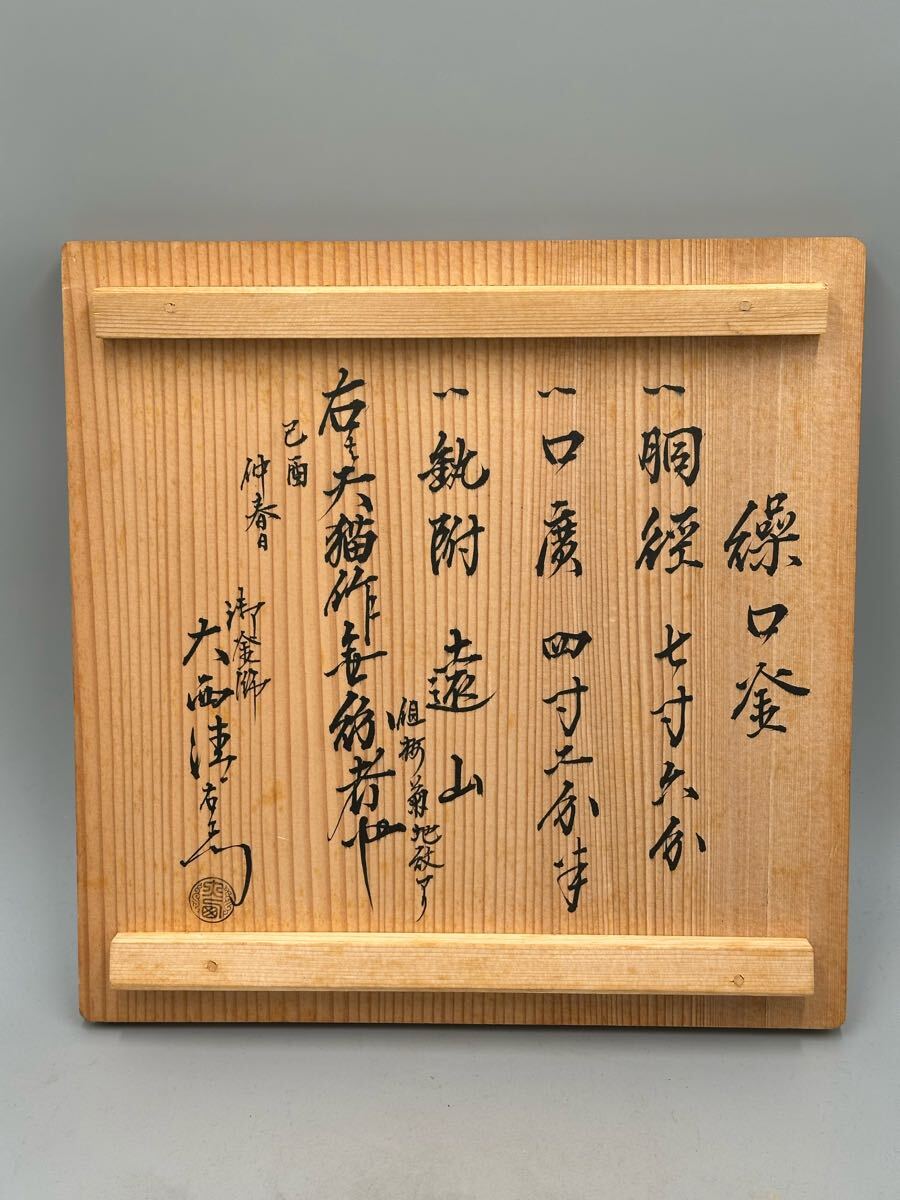 繰口釜
一 胴径 七寸六分
一 口廣 四寸二分半
一 鈬附 遠山
但 梅菊地紋アリ
右者大猶作無紛者也
己酉
仲春日
御釜師
大西清右衛門